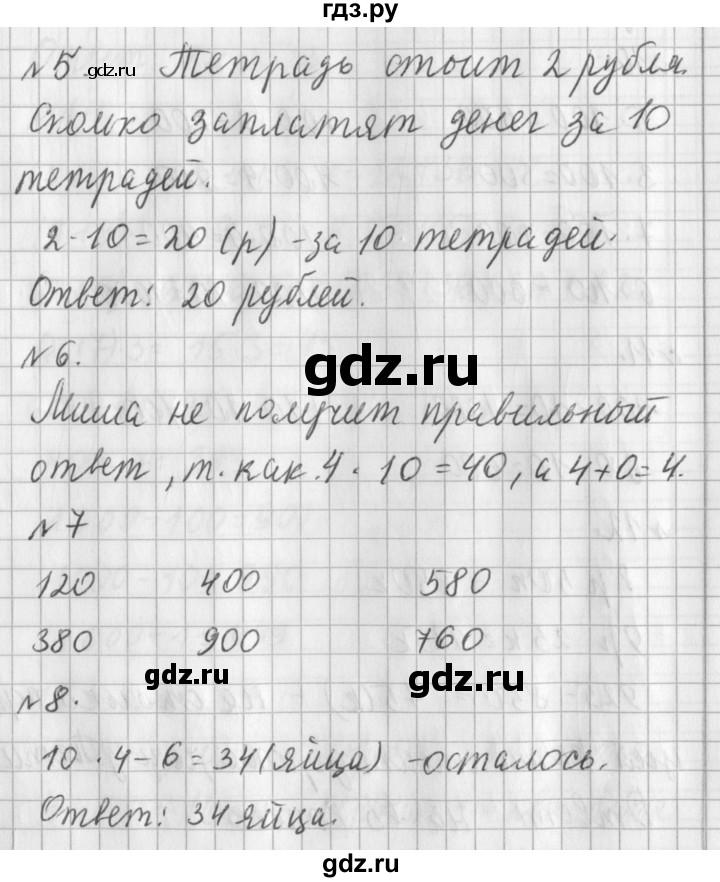 гдз.ру
№5 gdz.ru Тетрадь стоит 2 рубля.
Сколко заплатят денег за 10
тетрадей.
2·10=20 (р) -за 10 тетрадей.
Ответ: 20 рублей.
№6.
gdz.ru
Миша не получит правильный
ответ, т. как. 4 · 10 = 40, а 4+0=4.
№7
120 400 580
380 900 760
gdz.ru gdz.ru
№8.
10 · 4 - 6 = 34 (яйца) -осталось.
Ответ: 34 яйца.
gdz.ru